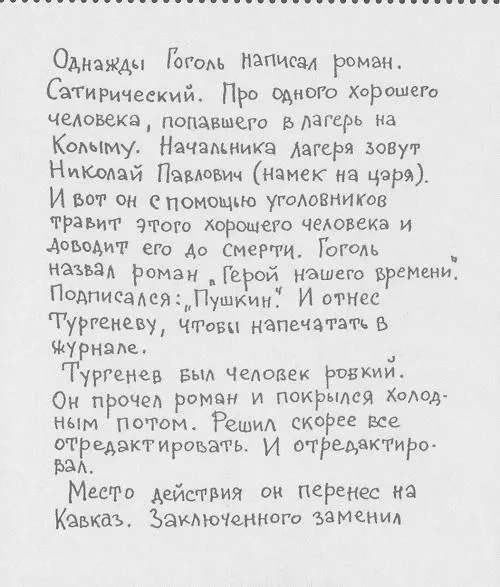 Однажды Гоголь написал роман.
Сатирический. Про одного хорошего
человека, попавшего в лагерь на
Колыму. Начальника лагеря зовут
Николай Павлович (намек на царя).
И вот он с помощью уголовников
травит этого хорошего человека и
доводит его до смерти. Гоголь
назвал роман „Герой нашего времени“.
Подписался: „Пушкин“. И отнес
Тургеневу, чтобы напечатать в
журнале.
Тургенев был человек робкий.
Он прочел роман и покрылся холод-
ным потом. Решил скорее все
отредактировать. И отредактиро-
вал.
Место действия он перенес на
Кавказ. Заключенного заменил